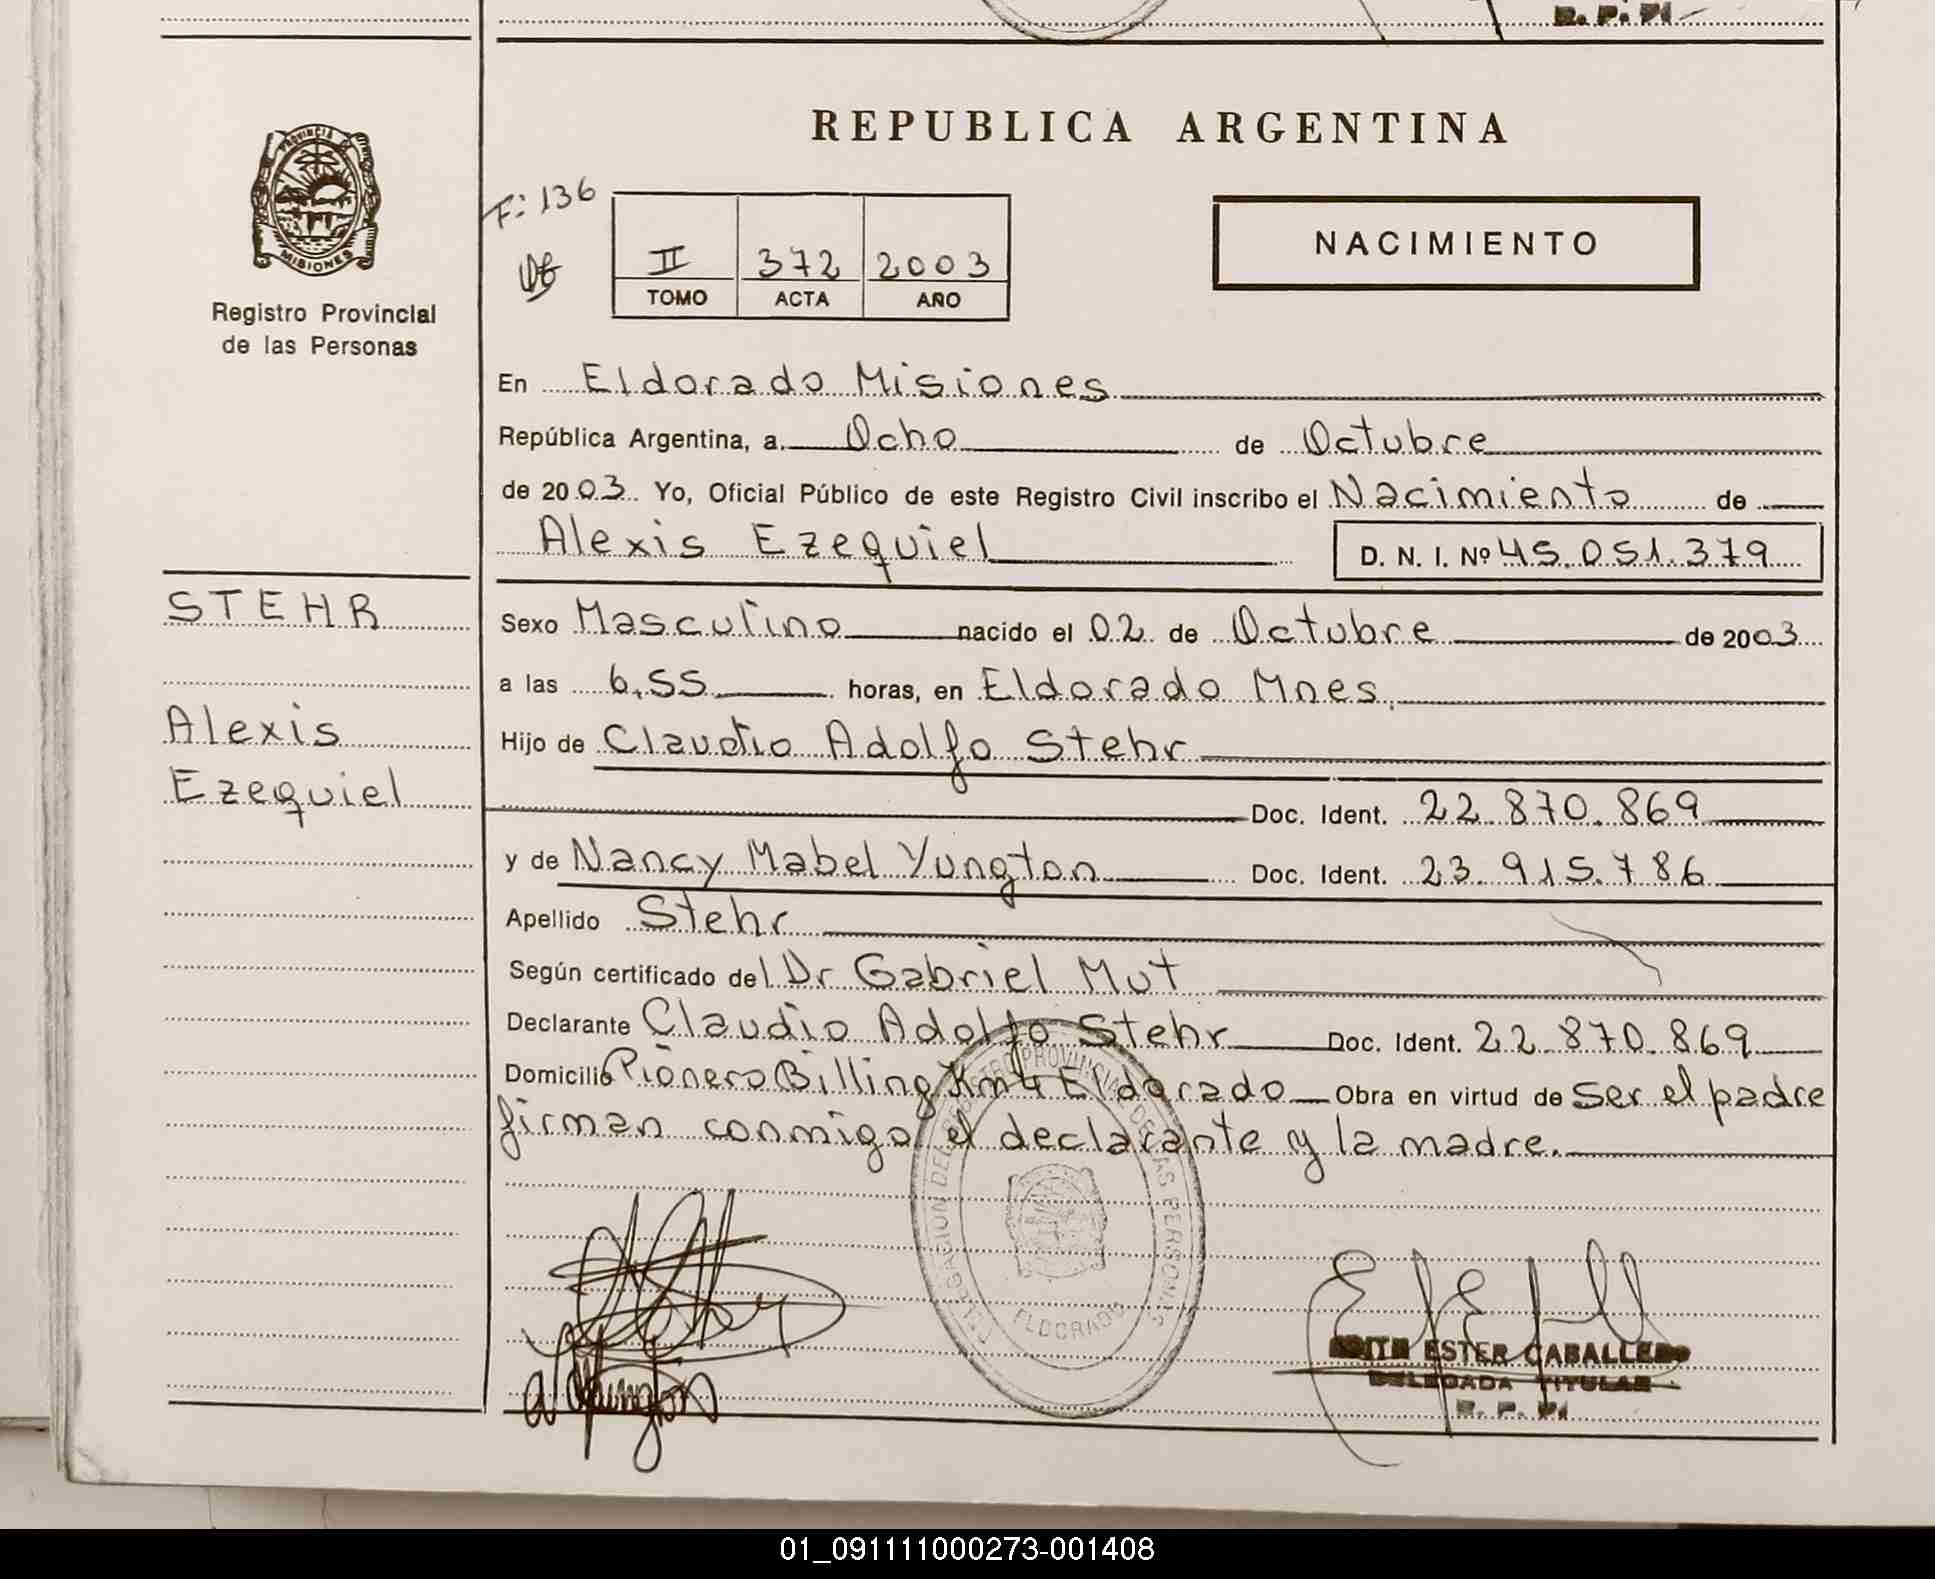 R. P. PI
REPUBLICA ARGENTINA
PROVINCIA
MISIONES
Registro Provincial
de las Personas
F: 136
II 372 2003
TOMO ACTA AÑO
NACIMIENTO
En Eldorado Misiones
República Argentina, a Ocho de Octubre
de 2003 Yo, Oficial Público de este Registro Civil inscribo el Nacimiento de
Alexis Ezequiel D. N. I. Nº 45.051.379
STEHR
Alexis
Ezequiel
Sexo Masculino nacido el 02 de Octubre de 2003
a las 6,55 horas, en Eldorado Mnes.
Hijo de Claudio Adolfo Stehr
Doc. Ident. 22.870.869
y de Nancy Mabel Yungton Doc. Ident. 23.915.786
Apellido Stehr
Según certificado del Dr Gabriel Mut
Declarante Claudio Adolfo Stehr Doc. Ident. 22.870.869
Domicilio Pionero Billing Km 4 Eldorado Obra en virtud de Ser el padre
firman conmigo el declarante y la madre.
DELEGACION DEL REGISTRO PROVINCIAL DE LAS PERSONAS
ELDORADO
EDITH ESTER CABALLERO
DELEGADA TITULAR
R. P. PI
01_091111000273-001408